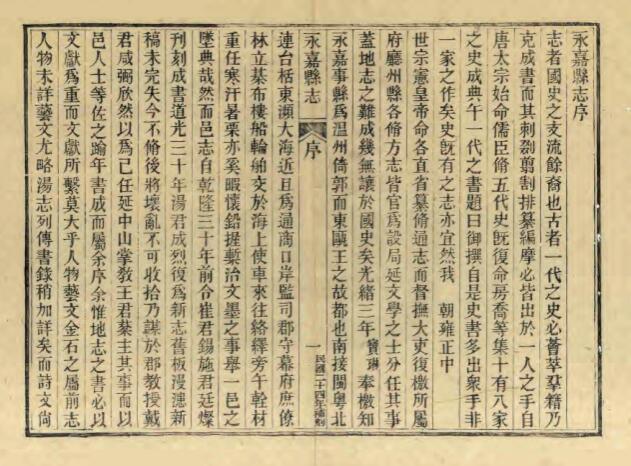 永嘉縣志序
志者國史之支流餘裔也古者一代之史必薈萃羣籍乃
克成書而其刺剟剪割排纂編摩必皆出於一人之手自
唐太宗始命儒臣脩五代史旣復命房喬等集十有八家
之史成典午一代之書題曰御撰自是史書多出衆手非
一家之作矣史旣有之志亦宜然我 朝雍正中
世宗憲皇帝命各直省纂脩通志而督撫大吏復檄所屬
府廳州縣各脩方志皆官爲設局延文學之士分任其事
蓋地志之難成幾無讓於國史矣光緒三年寶琳奉檄知
永嘉事縣爲温州倚郭而東甌王之故都也南接閩粤北
永嘉縣志 序 一 民國二十四年補刻
連台栝東瀕大海近且爲通商口岸監司郡守幕府庶僚
林立基布樓船輪舶交於海上使車來往絡繹旁午幹材
重任寒汗暑栗亦奚暇懷鉛握槧治文墨之事舉一邑之
墜典哉然而邑志自乾隆三十年前令崔君錫施君廷燦
刊刻成書道光三十年湯君成烈復爲新志舊板漫漶新
稿未完失今不脩後將壞亂不可收拾乃謀於郡教授戴
君咸弼欣然以爲己任延中山掌教王君棻主其事而以
邑人士等佐之踰年書成而屬余序余惟地志之書必以
文獻爲重而文獻所繫莫大乎人物藝文金石之屬前志
人物未詳藝文尤略湯志列傳書錄稍加詳矣而詩文尙